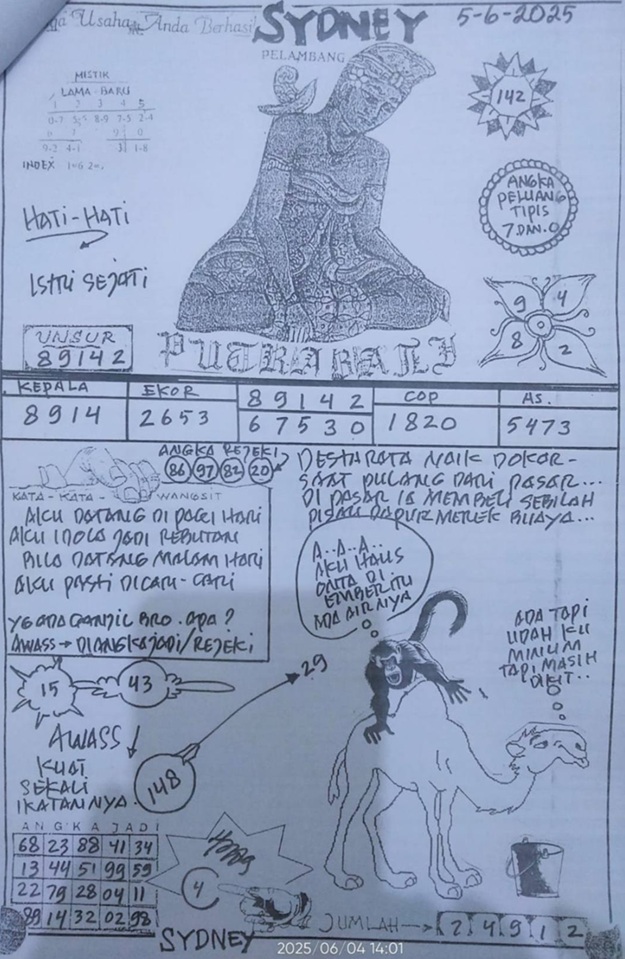 Usaha Anda Berhasil
SYDNEY
5-6-2025
PELAMBANG
MISTIK
LAMA - BARU
1 2 3 4 5
8-9 7-5 2-4
9-2 4-1 3 1-8
INDEX
142
HATI-HATI
ISTRI SEJATI
ANGKA
PELUANG
TIPIS
7 DAN 0
9 4
8 2
UNSUR
89142
PUTRA BALI
KEPALA EKOR 89142 COP AS.
8914 2653 67530 1820 5473
ANGKA REJEKI
86 97 82 20
KATA - KATA - WANGSIT
AKU DATANG DI PAGI HARI
AKU IDOLA JADI REBUTAN
BILA DATANG MALAM HARI
AKU PASTI DICARI-CARI
YG ADA GANJIL BRO. APA?
AWASS → DIANGKA JADI/REJEKI
DESTARATA NAIK DOKAR-
SAAT PULANG DARI PASAR...
DI PASAR IA MEMBELI SEBILAH
PISAU DAPUR MEREK BUAYA...
A..A..A..
AKU HAUS
ONTA DI
EMBER ITU
ADA AIRNYA
ADA TAPI
UDAH KU
MINIUM
TAPI MASIH
DIKIT..
15
43
29
AWASS
KUAT
SEKALI
IKATANNYA
148
ANGKA JADI
68 23 88 41 34
13 44 51 99 59
22 79 28 04 11
89 14 32 02 98
4
JUMLAH → 2 4 9 1 2
SYDNEY
2025/06/04 14:01